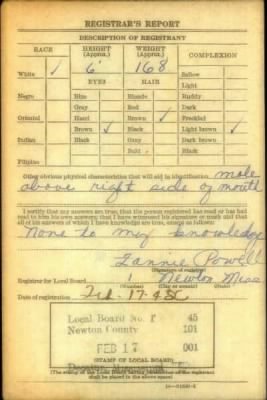 REGISTRAR'S REPORT
DESCRIPTION OF REGISTRANT
RACE HEIGHT (Approx.) WEIGHT (Approx.) COMPLEXION
White ✓ 6' 168 Sallow
EYES HAIR Light
Negro Blue Blonde Ruddy
Gray Red Dark
Oriental Hazel Brown ✓ Freckled
Brown ✓ Black Light brown ✓
Indian Black Gray Dark brown
Bald Black
Filipino
Other obvious physical characteristics that will aid in identification mole
above right side of mouth
I certify that my answers are true; that the person registered has read or has had
read to him his own answers; that I have witnessed his signature or mark and that
all of his answers of which I have knowledge are true, except as follows:
None to my knowledge
Lannie Powell
(Signature of registrar)
Registrar for Local Board 1 Newton Miss
(Number) (City or county) (State)
Date of registration Feb. 17-42
Local Board No. 1 45
Newton County 101
FEB 17 001
(STAMP OF LOCAL BOARD)
(The stamp of the Local Board having jurisdiction of the registrant
shall be placed in the above space)